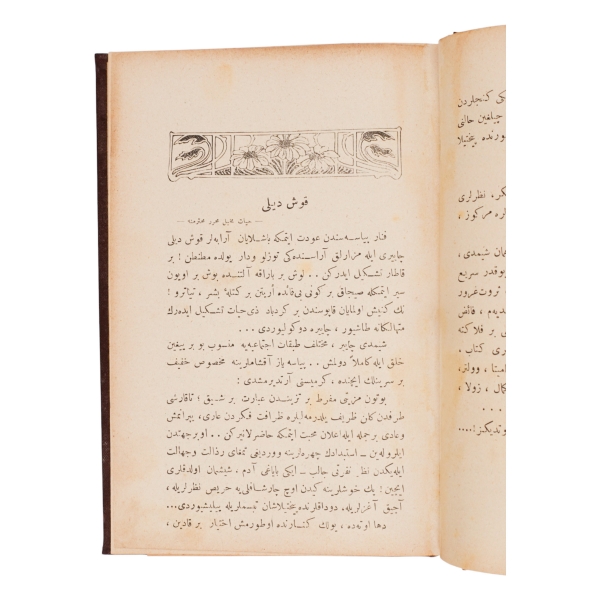 قوش دیلی
— حیات مخیل محرر محترمنه —
فنار پیاسه‌سندن عودت ایتمکه باشلایان آرابه‌لر قوش دیلی
چایری ایله مزارلق آراسنده‌کی توزلو و دار یولده مطنطن ! بر
قاطار تشکیل ایدرکن . . لوش بر باراقه آلتنده بوش بر اویون
سیر ایتمکله صیجاق بر کونی بی‌فائده اریتن بر کتلهٔ بشر ، تیاترو !
نك کنیش اولمایان قاپوسندن بر کردباد ذی‌حیات تشکیل ایده‌رك
متهالکانه طاشیور ، چایره دوکولیوردی . . .
شیمدی چایر ، مختلف طبقات اجتماعیه‌یه منسوب بو بر ییغین
خلق ایله کاملاً دولمش . . پیاسه یاز آقشاملرینه مخصوص خفیف
بر سرینلك ایچنده ، کرمیسنی آرتدیرمشدی .
بوتون مزیتی مفرط بر تزیندن عبارت بر شیق ؛ تا قارشی
طرفدن کلن ظریف یلدرمه‌لیلره ظرافت فکردن عاری ، پیرانمش
وعادی بر جمله ایله اعلان محبت ایتمکه حاضرلانیرکن . . اوبرجهتدن
ایلروله‌ین — استبدادك چهره‌لرینه ووردیغی تمغای رذالت وجهالت
ایله یکدن نظر نفرتی جالب — ایکی بایاغی آدم ، شیشمان اولدقلری
ایچین ! پك خوشلرینه کیدن اوچ چارشافلی‌یه حریص نظرلریله ،
آجیق آغزلریله ، دوداقلرنده پیختیلاشان تبسملریله ییلیشیوردی...
دها اوته‌ده ، یولك کنارنده اوطورمش اختیار بر قادین ،
کی کنجلردن
چیلغین حالنی
ورنده پیختیلا
کر ، نظرلری
اره مرکوز ،
مان شیمدی ،
بوقدر سریع
ثروت غرور
دیه‌م ، فائض
بر فلاکته
ری کتاب .
امیتا ، وولتر ،
کمال ، زولا ،
. . .
وتدیکز !....